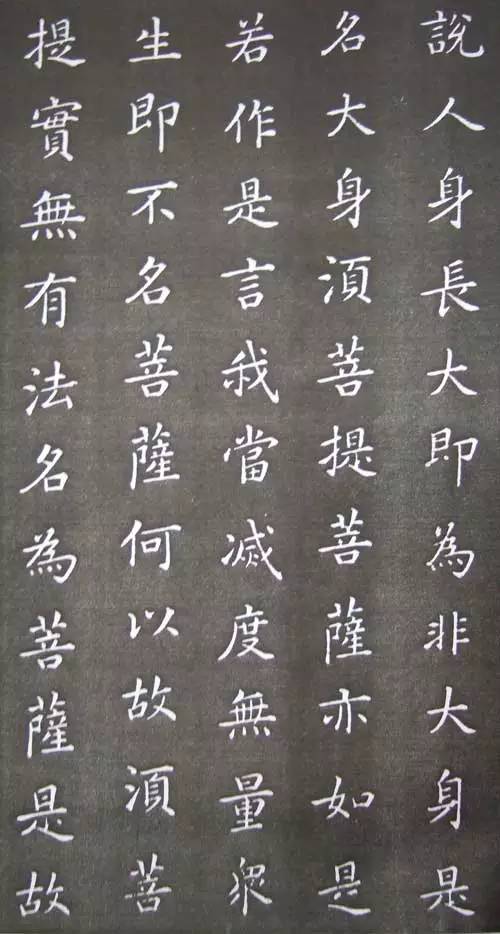 說人身長大即為非大身是
名大身須菩提菩薩亦如是
若作是言我當滅度無量眾
生即不名菩薩何以故須菩
提實無有法名為菩薩是故